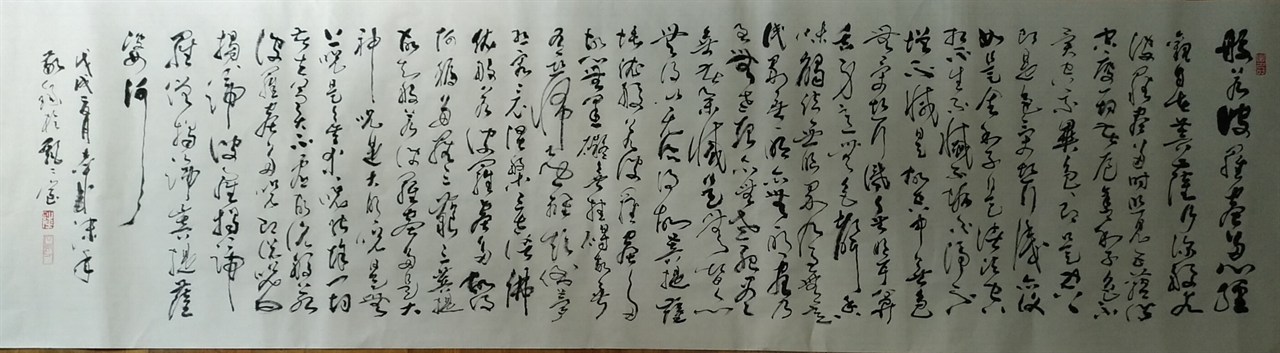 般若波羅蜜多心經
觀自在菩薩行深般若
波羅蜜多時照見五蘊皆
空度一切苦厄舍利子色不
異空空不異色色即是空空
即是色受想行識亦復
如是舍利子是諸法空
相不生不滅不垢不淨不
增不減是故空中無色
無受想行識無眼耳鼻
舌身意無色聲香
味觸法無眼界乃至無意
識界無無明亦無無明盡乃
至無老死亦無老死盡
無苦集滅道無智亦
無得以無所得故菩提薩
埵依般若波羅蜜多
故心無罣礙無罣礙故無
有恐怖遠離顛倒夢
想究竟涅槃三世諸佛
依般若波羅蜜多故得
阿耨多羅三藐三菩提
故知般若波羅蜜多是大
神咒是大明咒是無
上咒是無等等咒能除一切
苦真實不虛故說般若
波羅蜜多咒即說咒曰
揭諦揭諦波羅揭諦
波羅僧揭諦菩提薩
婆訶
戊戌